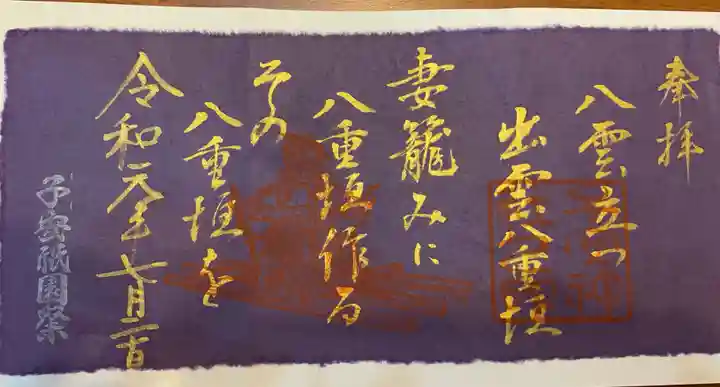 奉拝
八雲立つ
出雲八重垣
妻籠みに
八重垣作る
その
八重垣を
令和元年七月二百
子安祇園祭